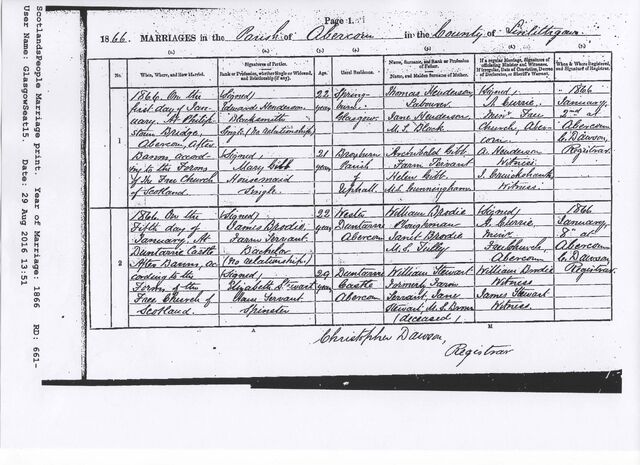 Page 1.
1866. MARRIAGES in the Parish of Abercorn in the County of Linlithgow
No.
When, Where, and How Married.
Signatures of Parties.
Rank or Profession, whether Single or Widowed, and Relationship (if any).
Age.
Usual Residence.
Name, Surname, and Rank or Profession of Father.
Name, and Maiden Surname of Mother.
If a regular Marriage, Signatures of officiating Minister and Witnesses.
If irregular, Date of Conviction, Decree of Declarator, or Sheriff's Warrant.
When & Where Registered, and Signature of Registrar.
1
1866. On the
first day of Jan-
uary. At Philip-
stoun Bridge,
Abercorn, After
Banns, accord-
ing to the Forms
of the Free Church
of Scotland.
(Signed)
Edward Henderson
Blacksmith
Single (No relationship)
(Signed)
Mary Gibb
Housemaid
Single
22
years
21
years
Spring-
burn
Glasgow
Broxburn
Parish
of
Uphall
Thomas Henderson
Labourer
Jane Henderson
M.S. Black
Archibald Gibb
Farm Servant
Helen Gibb
M.S. Cunningham
(Signed)
A. Currie,
Minr. Free
Church, Aber-
corn.
A. Henderson
Witness.
J. Cruickshank
Witness.
1866
January,
2nd at
Abercorn
C. Dawson,
Registrar.
2
1866. On the
Fifth day of
January, At
Duntarvie Castle
After Banns, ac-
cording to the
Forms of the
Free Church of
Scotland
(Signed)
James Brodie
Farm Servant
Bachelor
(No relationship)
(Signed)
Elizabeth Stewart
Farm Servant
Spinster
22
years
29
years
Wester
Duntarvie
Abercorn
Duntarvie
Castle
Abercorn
William Brodie
Ploughman
Janet Brodie
M.S. Tulley
William Stewart
Formerly Farm
Servant, Jane
Stewart, M.S.
(deceased)
(Signed)
A. Currie,
Minr.
Free Church,
Abercorn
William Brodie
Witness
James Stewart
Witness.
1866
January,
8th at
Abercorn
C. Dawson
Registrar.
Christopher Dawson,
Registrar
ScotlandsPeople Marriage print. Year of Marriage: 1866 RD: 661-
User Name: GlasgowSeat15. Date: 29 Aug 2016 13:51